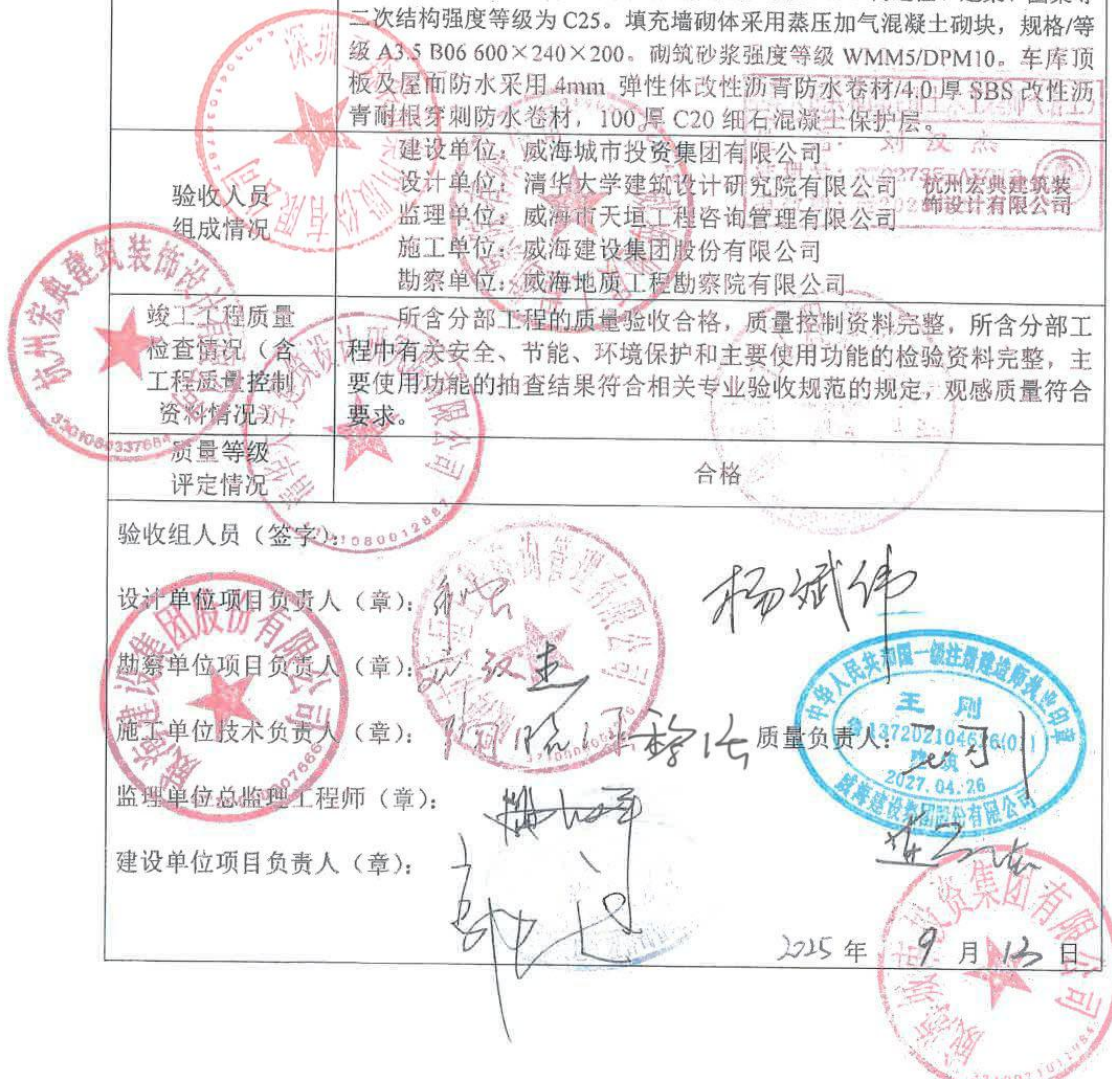 二次结构强度等级为 C25。填充墙砌体采用蒸压加气混凝土砌块，规格/等
级 A3.5 B06 600×240×200。砌筑砂浆强度等级 WMM5/DPM10。车库顶
板及屋面防水采用 4mm 弹性体改性沥青防水卷材/4.0 厚 SBS 改性沥
青耐根穿刺防水卷材，100 厚 C20 细石混凝土保护层。
验收人员
组成情况
建设单位：威海城市投资集团有限公司
设计单位：清华大学建筑设计研究院有限公司
监理单位：威海市天垣工程咨询管理有限公司
施工单位：威海建设集团股份有限公司
勘察单位：威海地质工程勘察院有限公司
杭州宏典建筑装
饰设计有限公司
竣工工程质量
检查情况（含
工程质量控制
资料情况）
所含分部工程的质量验收合格，质量控制资料完整，所含分部工
程中有关安全、节能、环境保护和主要使用功能的检验资料完整，主
要使用功能的抽查结果符合相关专业验收规范的规定，观感质量符合
要求。
质量等级
评定情况
合格
验收组人员（签字）：
设计单位项目负责人（章）：
杨斌伟
勘察单位项目负责人（章）：
施工单位技术负责人（章）：
质量负责人：
监理单位总监理工程师（章）：
建设单位项目负责人（章）：
2025 年 9 月 12 日
杭州宏典建筑装饰设计有限公司
威海建设集团股份有限公司
中华人民共和国一级注册建造师执业印章
王 刚
建筑
2027.04.26
威海建设集团股份有限公司